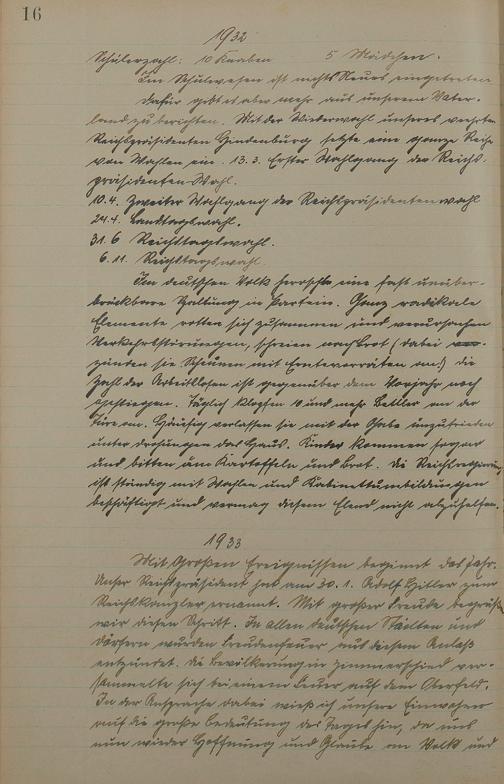 16
1932
Schülerzahl: 10 Knaben 5 Mädchen.
Im Schulwesen ist nichts Neues eingetreten
Dafür gibt es aber mehr aus unserem Vater-
land zu berichten. Mit der Wiederwahl unseres verehrten
Reichspräsidenten Hindenburg setzte eine ganze Reihe
von Wahlen ein. 13.3. Erster Wahlgang der Reichs-
präsidenten Wahl.
10.4. Zweiter Wahlgang der Reichspräsidentenwahl
24.4. Landtagswahl.
31.6 Reichstagswahl.
6.11. Reichstagswahl.
Im deutschen Volk herrscht eine fast unüber-
brückbare Spaltung in Parteien. Ganz radikale
Elemente rotten sich zusammen und verursachen
Verkehrsstörungen, schreien nach Brot (dabei
zünden sie Scheunen mit Erntevorräten an!) die
Zahl der Arbeitslosen ist gegenüber dem Vorjahr noch
gestiegen. Täglich klopfen 10 und mehr Bettler an der
Türe an. Häufig verlassen sie mit der Gabe unzufrieden
unter Drohungen das Haus. Kinder kommen sogar
und bitten um Kartoffeln und Brot. Die Reichsregierung
ist ständig mit Wahlen und Kabinettumbildungen
beschäftigt und vermag diesem Elend nicht abzuhelfen.
1933
Mit Großen Ereignissen beginnt das Jahr.
Unser Reichspräsident hat am 30.1. Adolf Hitler zum
Reichskanzler ernannt. Mit großer Freude begrüßen
wir diesen Schritt. In allen deutschen Städten und
Dörfern wurden Freudenfeuer aus diesem Anlaß
entzündet. Die Bevölkerung in Zimmerschied ver-
sammelte sich bei einem Feuer auf dem Oberfeld.
In der Ansprache dabei wies ich unsere Einwohner
auf die große Bedeutung des Tages hin, da uns
nun wieder Hoffnung und Glaube an Volk und